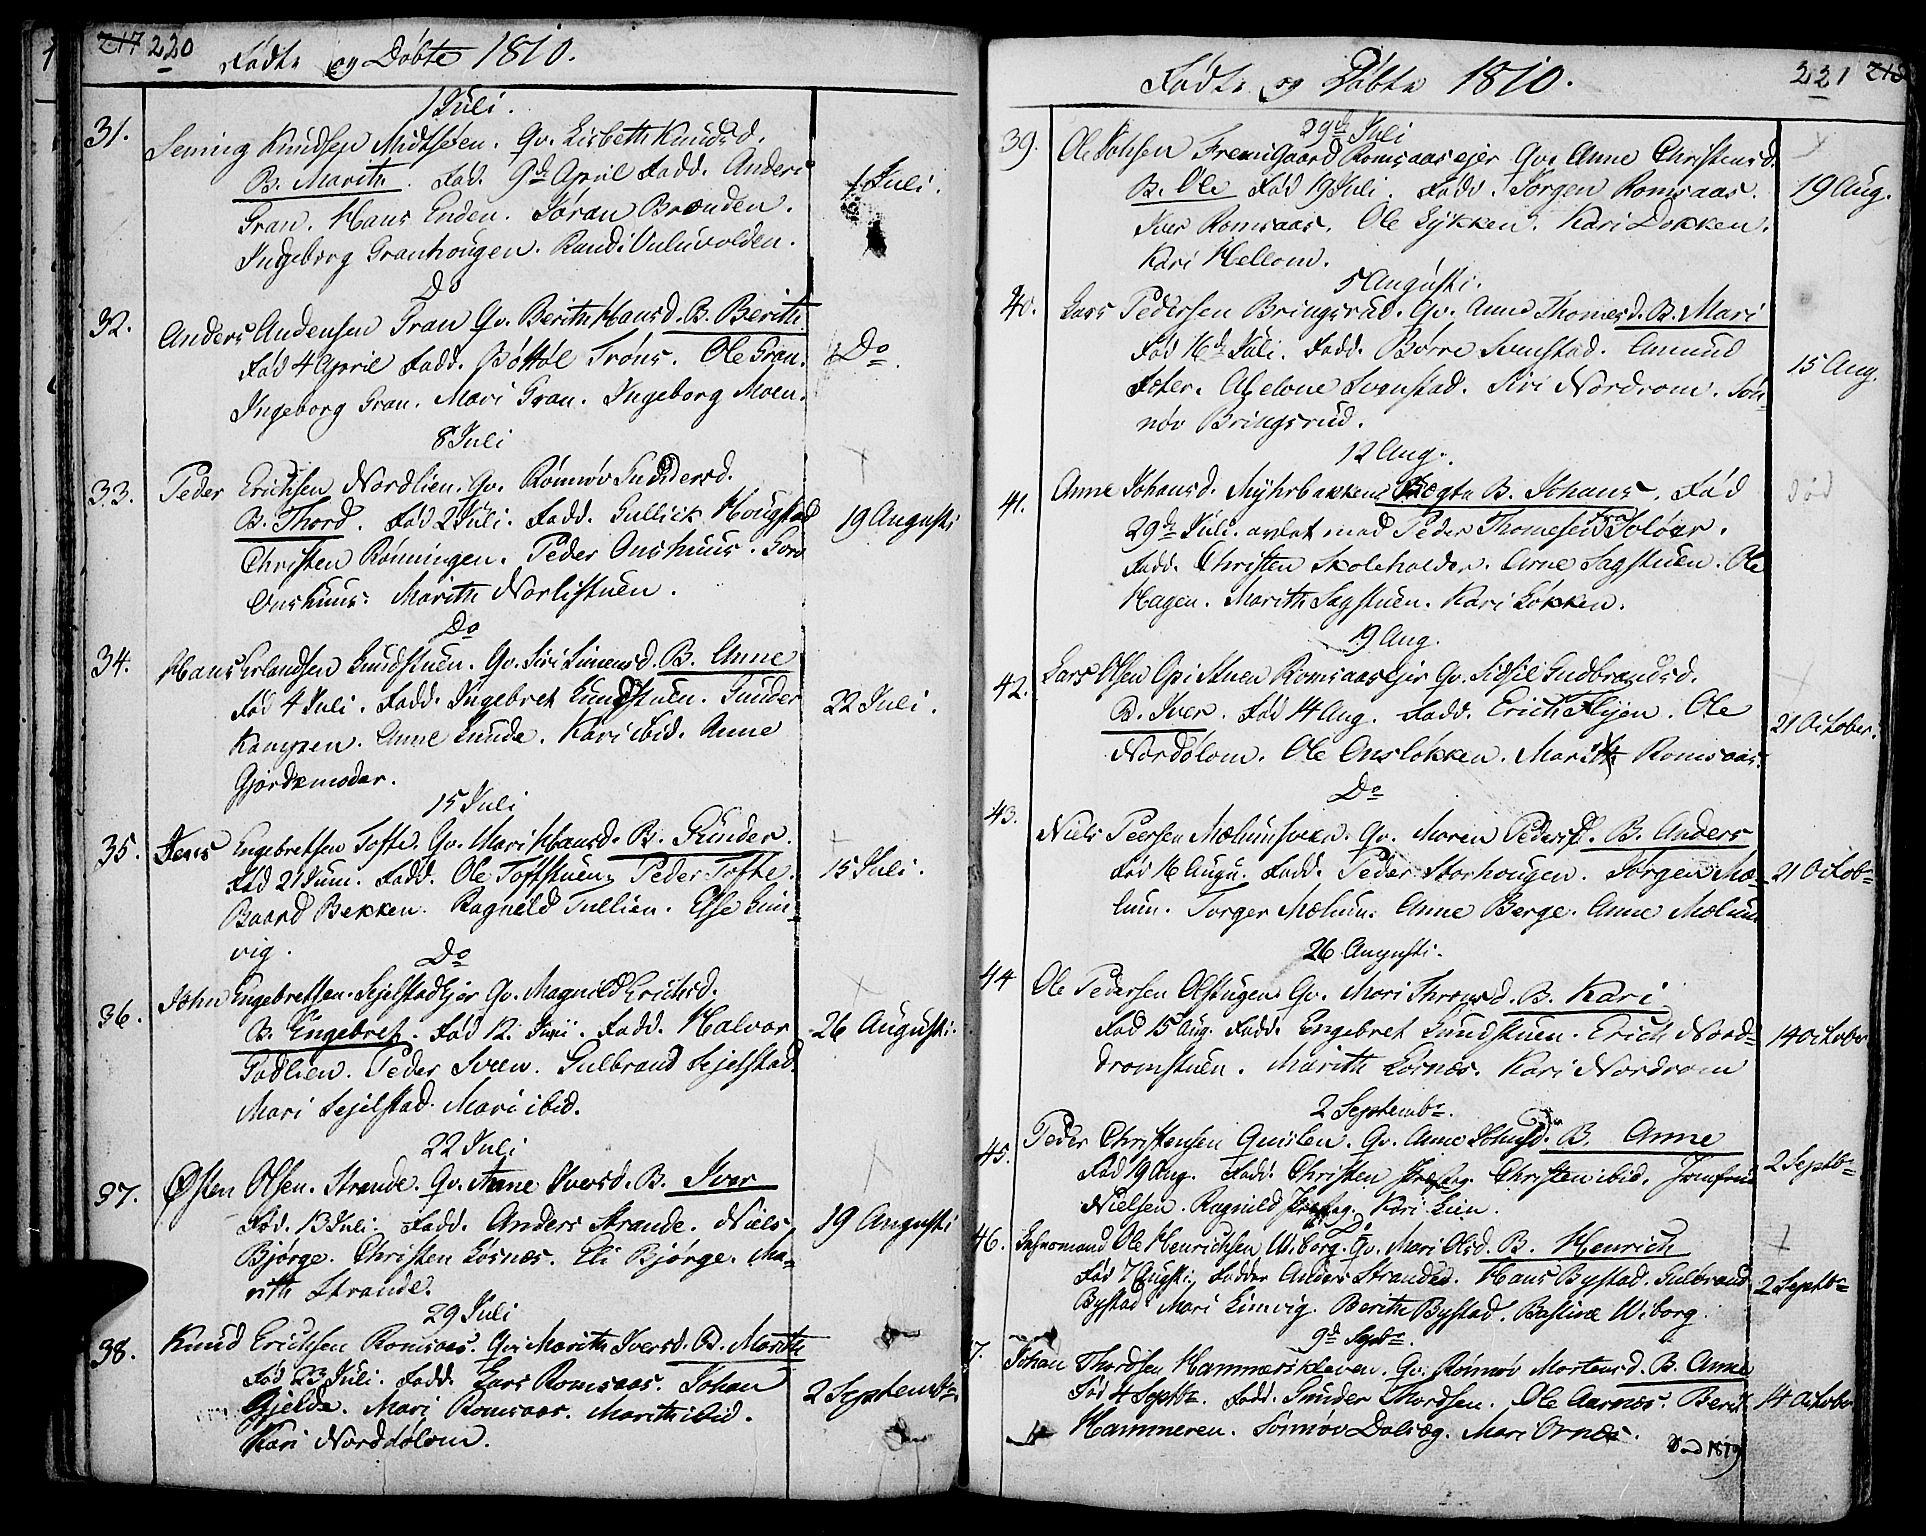 217 220 Fødte og Døbte 1810.
1 Juli.
31. Seming Knudsen Midtsëen. Qv. Lisbeth Knudsd.
B. Marith. Fød. 9d April Fadd. Anders 1 Juli.
Gran. Hans Enden. Jøran Brænden.
Ingeborg Granhougen. Randi Uuluvolden.
Do
32. Anders Andensen Gran Qv. Berith Hansd. B. Berith
Fød 4 April Fadd. Bottøl Trøns. Ole Gran. Do.
Ingeborg Gran. Mari Gran. Ingeborg Moen.
8 Juli
33. Peder Erichsen Nordlien. Qv. Rønnøv Gundersd.
B. Thord. Fød 2 Juli. Fadd. Gullick Hougstad 19 Augusti
Christen Rønningen. Peder Onshuus. Goro
Onshuus. Marith Norlistuen.
Do
34. Hans Erlandsen Sundstuen. Qv. Siri Simensd. B. Anne
Fød 4 Juli. Fadd. Ingebret Sundstuen. Gunder 22 Juli.
Kampen. Anne Sunde. Kari ibid. Anne
Gjordemoder.
15 Juli
35. Jens Engebretsen Tofte. Qv. Mari Hansd. B. Gunder.
Fød 21 Juni. Fadd. Ole Toftstuen. Peder Tofte. 15 Juli.
Baard Bekken. Ragnild Tullien. Else Lun-
vig.
Do
36. John Engebretsen Sejelstad Ejer Qv. Magnild Erichsd.
B. Engebret. Fød 12. Juni. Fadd. Halvor 26 Augusti.
Godlien. Peder Sveen. Gulbrand Sejelstad.
Mari Sejelstad. Mari ibid.
22 Juli
37. Østen Olsen. Strande. Qv. Anne Iversd. B. Iver
Fød. 13 Juli. Fadd. Anders Strande. Niels 19 Augusti
Bjørge. Christen Losnæs. Eli Bjørge. Ma-
rith Strande.
29 Juli
38. Knud Erichsen Romsaas. Qv. Marith Iversd. B. Marith
Fød 23 Juli. Fadd. Lars Romsaas. Johan 2 Septembr
Gjelde. Mari Romsaas. Marith ibid.
Kari Norddølom.
Fødte og Døbte 1810. 221 218
29d Juli
39. Ole Johsen Fremgaard Romsaas ejer Qv. Anne Christensd.
B. Ole Fød 19 Juli. Fadd. Jørgen Romsaas. 19 Aug.
Iver Romsaas. Ole Lykken. Kari Dokken.
Kari Hellom.
5 Augusti.
40. Lars Pedersen Bringsrud. Qv. Anne Thomesd. B. Mari
Fød 16d Juli. Fadd. Børre Svenstad. Amund
Sæter. Abelone Svenstad. Siri Nordrom. Søn- 15 Aug.
nøv Bringsrud.
12 Aug.
41. Anne Johansd. Myhrbakken Uægte B. Johans. Fød død
29d Juli. avlet med Peder Thomesen fra Soløer.
Fadd. Christen Skoleholder. Arne Sagstuen. Ole
Hagen. Marith Sagstuen. Kari Løkken.
19 Aug.
42. Lars Olsen Opistuen Romsaas Ejer Qv. Sidsil Gudbrandsd.
B. Iver. Fød 14 Aug. Fadd. Erich Flyen. Ole 21 October.
Nordølom. Ole Onsløkken. Marith Romsaas.
Do
43. Niels Peersen Mælumsveen. Qv. Maren Pedersd. B. Anders
Fød 16 Augu. Fadd. Peder Storhougen. Jørgen Mæ- 21 Octobr
lum. Torger Mælum. Anne Berge. Anne Mælum
26 Augusti.
44 Ole Pedersen Olstugen Qv. Mari Thronsd. B. Kari
Fød 15 Aug. Fadd. Engebret Sundstuen. Erich Nord- 14 October
dromstuen. Marith Losnæs. Kari Nordrom
2 Septembr.
45. Peder Christensen Quislen. Qv. Anne Johnsd. B. Anne
Fød 19 Aug. Fadd. Christen Christen ibid. Jomfrue 2 Septbr
Nielsen. Ragnild Kari Lien.
Do
46. Ole Henrichsen Wiborg. Qv. Mari Olsd. B. Henrich
Fød 7 Augusti, Fadder Anders Strande. Hans Bystad. Gulbrand 2 Septbr
Bystad. Mari Limvig. Berith Bystad. Wiborg.
9d Septr.
7. Johan Thordsen Hammerskleven. Qv. Rønnøv Mortensd. B. Anne
Fød 4 Septbr. Fadd. Gunder Thordsen. Ole Aarnes. Berit 14 October
Hammeren. Sønnøv Dalsæg. Mari Ornæs. Død 1879